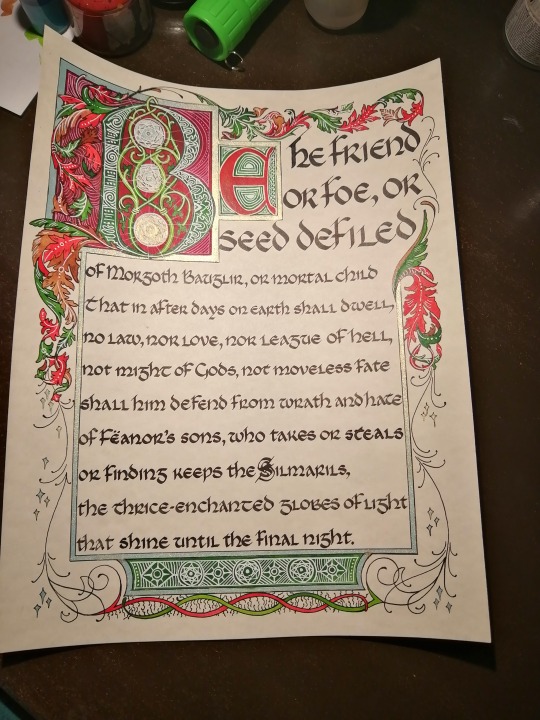 BE he friend
or foe, or
seed defiled
of Morgoth Bauglir, or mortal child
that in after days on earth shall dwell,
no law, nor love, nor league of hell,
not might of Gods, not moveless fate
shall him defend from wrath and hate
of Fëanor's sons, who takes or steals
or finding keeps the Silmarils,
the thrice-enchanted globes of light
that shine until the final night.